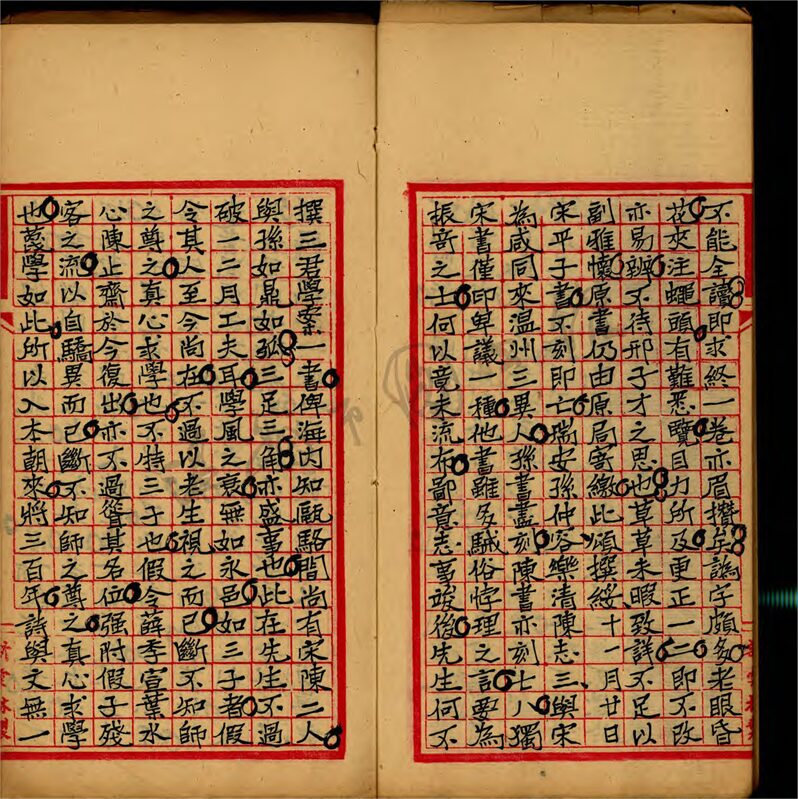 不能全讀即求終一卷亦眉攢矣譌字頗多老眼昏
花夾注蠅頭有難悉覽目力所及更正一二即不改
亦易辨不待邢子才之思也草草未暇致詳不足以
副雅懷原書仍由原局寄繳此頌撰綏十一月廿日
宋平子書不刻即亡瑞安孫仲容樂清陳志三與宋
為咸同來溫州三異人孫書盡刻陳書亦刻七八獨
宋書僅印卑議一種他書雖多駴俗悖理之言要為
振奇之士何以竟未流布鄙意志事竣後先生何不
撰三君學案一書俾海內知甌駱間尚有宋陳二人
與孫如鼎如弧三足三角亦盛事也此在先生不過
破一二月工夫耳學風之衰無如永邑如三子者假
令其人至今尚在不過以老生視之而已斷不知師
之尊之真心求學也不特三子也假令薛季宣葉水
心陳止齋於今復出亦不過聳其名位强附假子殘
客之流以自驕異而已斷不知師之尊之真心求學
也蔑學如此所以入本朝來將三百年詩與文無一